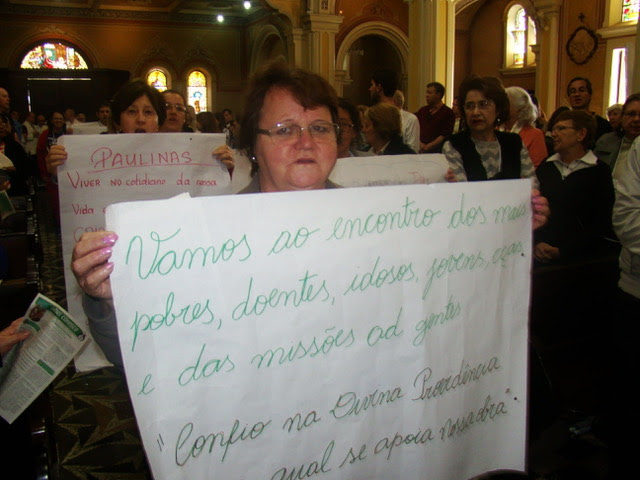 PAULINAS
VIVER NO COTIDIANO DA nossa
Vida
Vamos ao encontro dos mais
pobres, doentes, idosos, jovens, cças.
e das missões ad gentes
"Confio na Divina Providência
qual se apoia nossa obra".